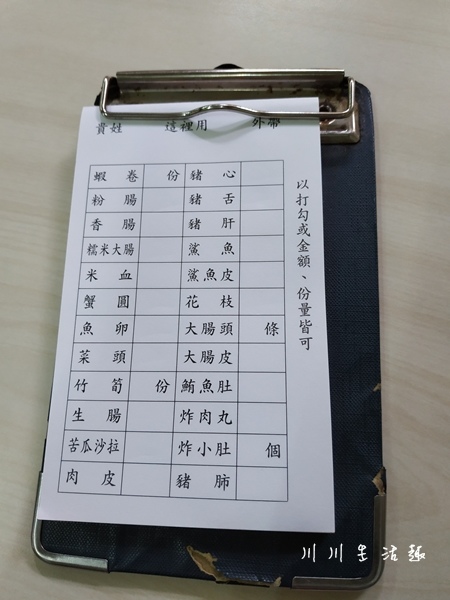 貴姓 這裡用 外帶
蝦卷 份 豬心
粉腸 豬舌
香腸 豬肝
糯米大腸 鯊魚
米血 鯊魚皮
蟹圓 花枝
魚卵 大腸頭 條
菜頭 大腸皮
竹筍 份 鮪魚肚
生腸 炸肉丸
苦瓜沙拉 炸小肚 個
肉皮 豬肺
以打勾或金額、份量皆可
川川生活趣